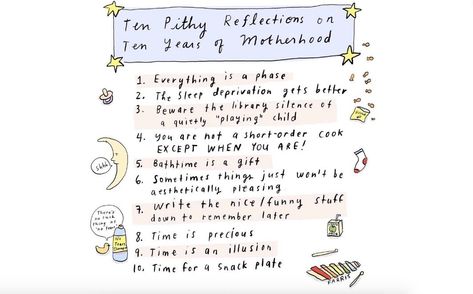 Ten Pithy Reflections on
Ten Years of Motherhood
1. Everything is a phase
2. The sleep deprivation gets better
3. Beware the library silence of
a quietly "playing" child
4. You are not a short-order cook
EXCEPT WHEN YOU ARE!
5. Bathtime is a gift
6. Sometimes things just won't be
aesthetically pleasing
7. Write the nice/funny stuff
down to remember later
8. Time is precious
9. Time is an illusion
10. Time for a snack plate
shhh
There's
no such
thing as
"no tears"
No
Tears
Shampoo
FARRIS